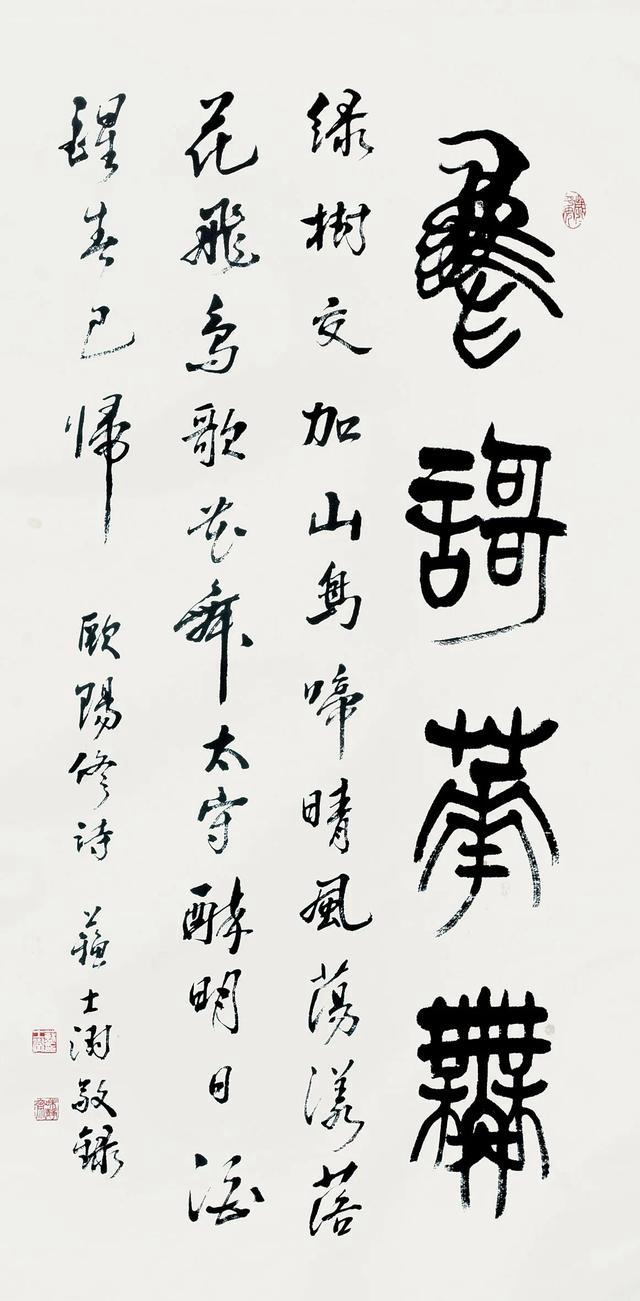 鳥謌華舞
緑樹交加山鳥啼晴風蕩漾落
花飛鳥歌花舞太守醉明日酒
醒春已歸 歐陽修詩 蘇士澍敬錄